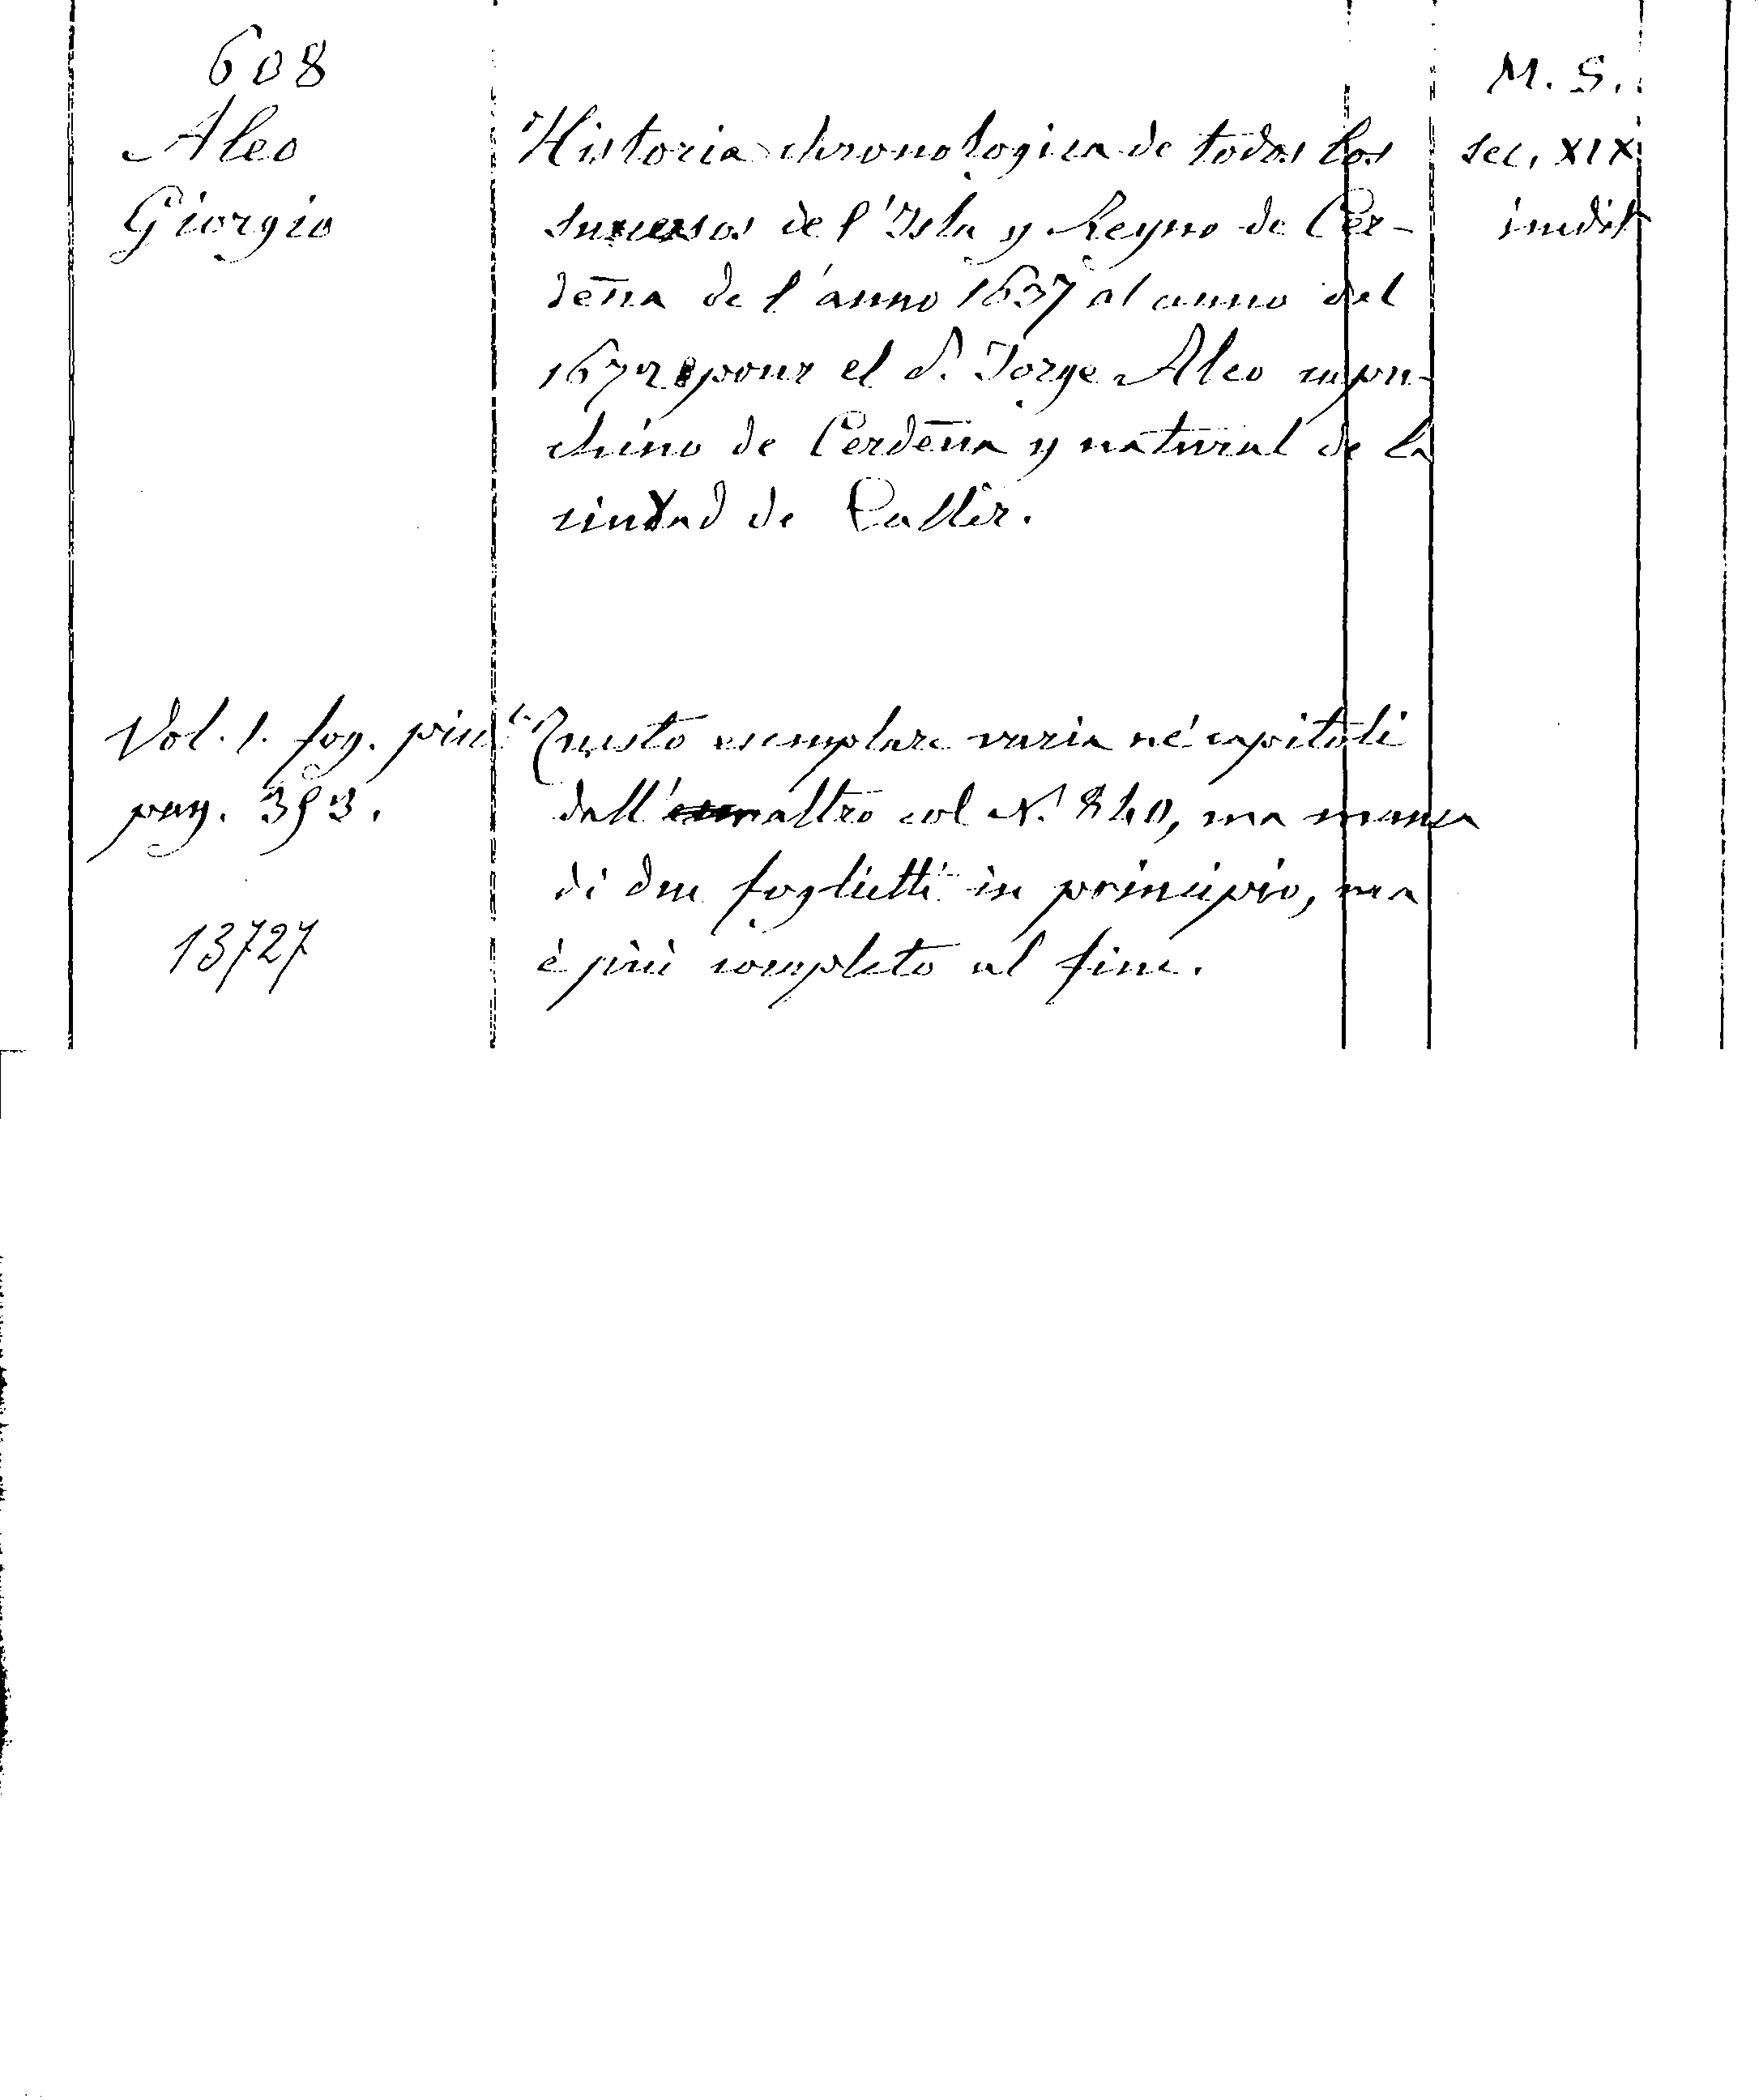 608
Aleo
Giorgio
Historia chronologica de todos los
sucessos de l'Isla y Reyno de Cer-
deña de l'anno 1637 al anno del
1672 pour el P. Jorge Aleo capu-
chino de Cerdeña y natural de la
ciudad de Caller.
M. S.
sec. XIX
inedit
Vol. 1. fog. picc.
pag. 393.
13727
Questo esemplare varia ne' capitoli
dall' altro col N. 840, ma manca
di due foglietti in principio, ma
è più completo al fine.